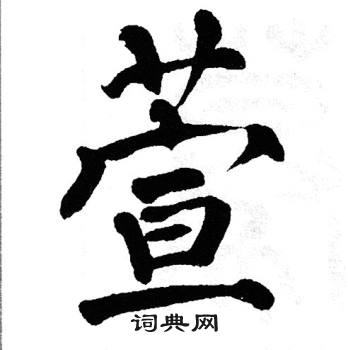 萱
词典网